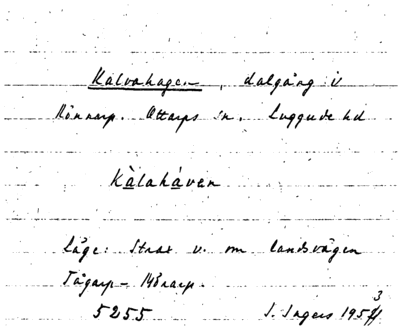 Kalvahagen, dalgång i
Rönnarp. Ottarps sn. Luggude hd
Kàlahàven
Läge: Strax v. om landsvägen
Tågarp - Rönnarp.
5255 I. Ingers 1953